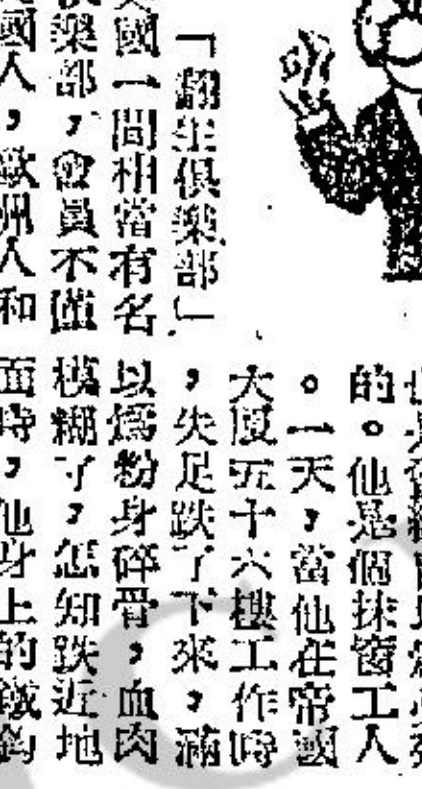 「翻生俱樂部」
國一間相當有名
樂部,會員不僅
國人,歐洲人和
的。他是個抹窗工人
。一天,當他在帝國
大厦五十六樓工作時
,失足跌了下來,滿
以爲粉身碎骨,血肉
模糊了,怎知跌近地
面時,他身上的鐵鈎